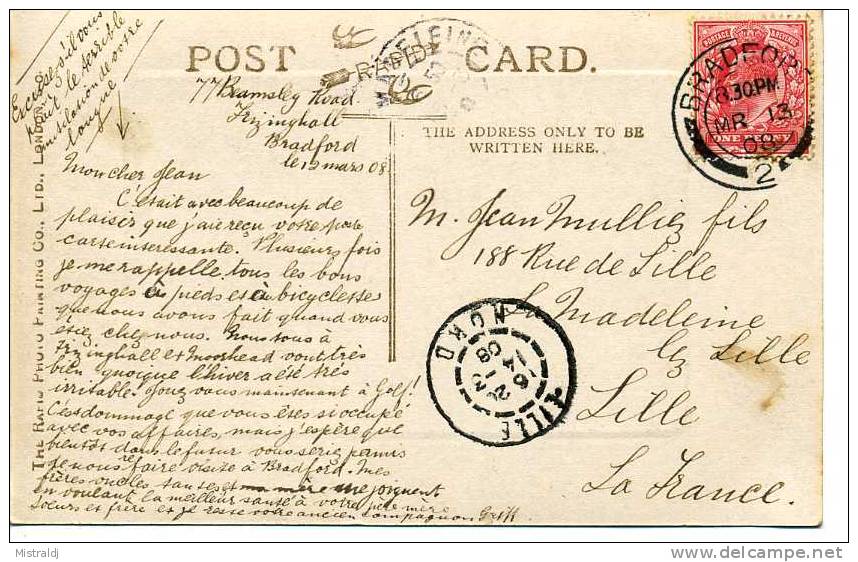 POST CARD.
RAPID
MADELEINE
THE ADDRESS ONLY TO BE
WRITTEN HERE.
THE RAPID PHOTO PRINTING CO., LTD., LONDON
POSTAGE & REVENUE
ONE PENNY
BRADFORD
8.30PM
MR 13
08
2
Excuse s'il vous
plait le terrible
mutilation de votre
langue
77 Bramsley Road.
Frizinghall
Bradford
le 12 mars 08.
Mon cher Jean
C'était avec beaucoup de
plaisir que j'aie reçu votre poste
carte interessante. Plusieurs fois
je me rappelle tous les bons
voyages à pieds et à bicyclesse
que nous avons fait quand vous
etiez chez nous. Nous tous à
Frizinghall et Moorhead vont très
bien quoique l'hiver a été très
irritable. Jouez vous maintenant à Golf!
C'est dommage que vous êtes si occupé
avec vos affaires, mais j'espère que
bientôt dans le futur vous serie permis
de nous refaire visite à Bradford. Mes
frères oncles tantes et ma mère me joignent
en voulant la meilleur santé à votre père mère
soeurs et frère et je reste votre ancien compagnon
M. Jean Mulliez fils
188 Rue de Lille
La Madeleine
lez Lille
Lille
La France.
LILLE
NORD
16
14
08
Mistraldj
delcampe.net